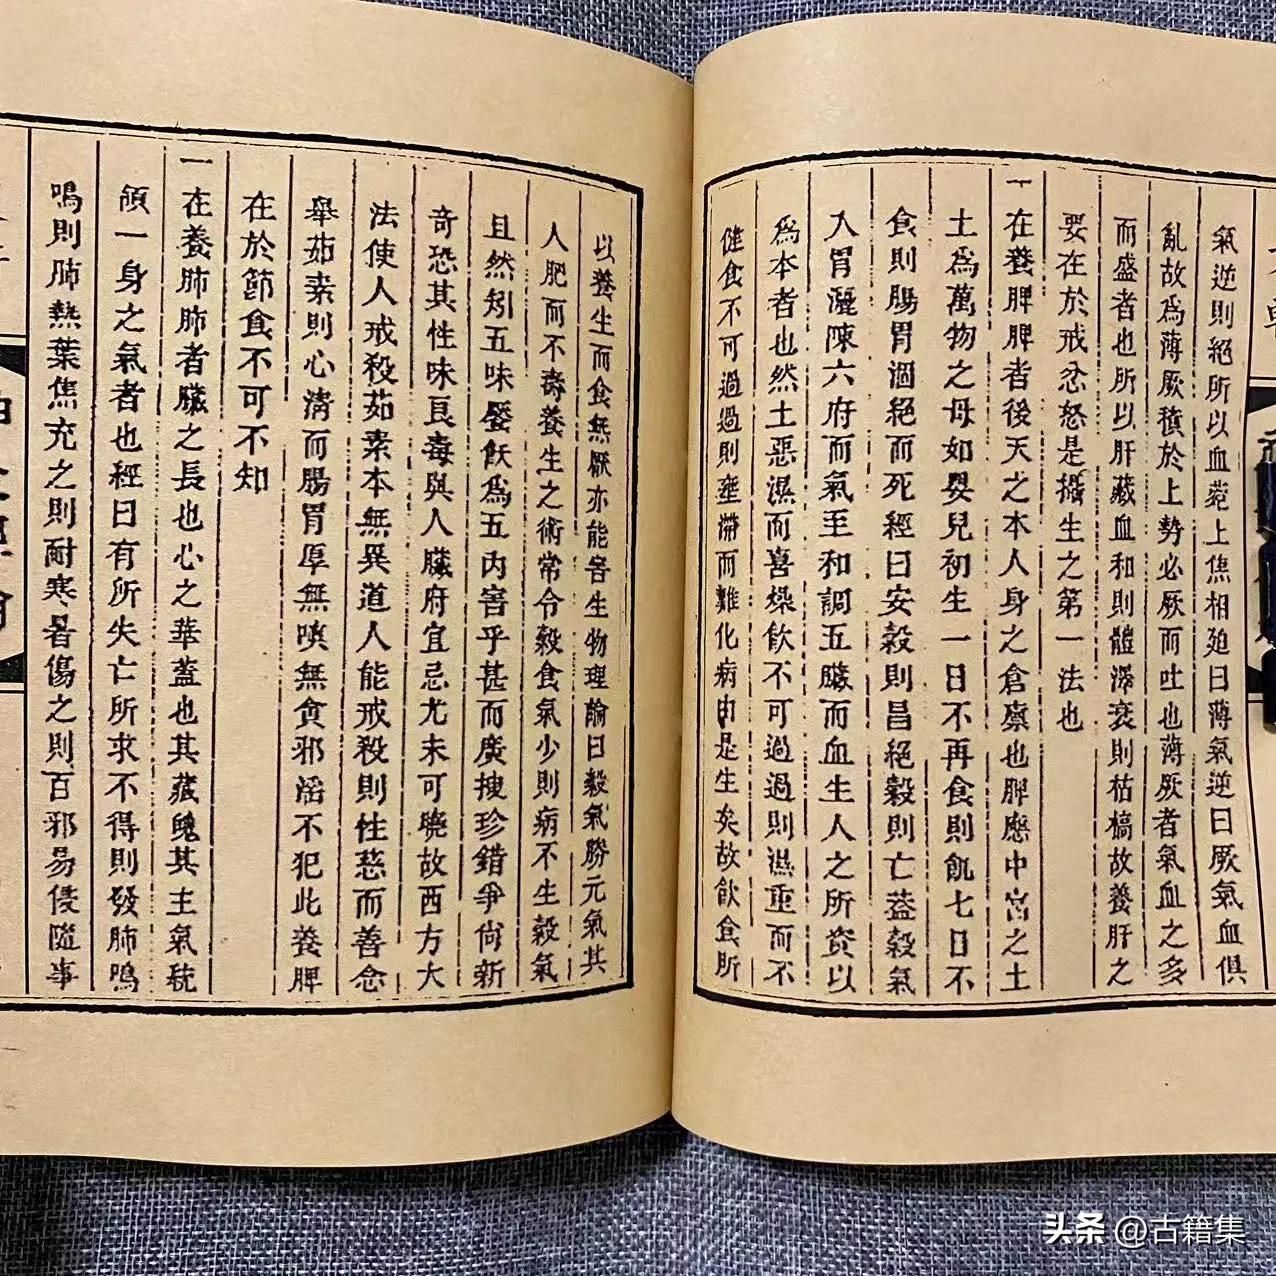 氣逆則絕所以血菀上焦相廹曰薄氣逆曰厥氣血俱
亂故爲薄厥積於上勢必厥而吐也薄厥者氣血之多
而盛者也所以肝藏血和則體澤衰則枯槁故養肝之
要在於戒忿怒是攝生之第一法也
一在養脾脾者後天之本人身之倉廩也脾應中宮之土
土爲萬物之母如嬰兒初生一日不再食則飢七日不
食則腸胃涸絕而死經曰安穀則昌絕穀則亡葢穀氣
入胃灑陳六府而氣至和調五臟而血生人之所資以
爲本者也然土惡濕而喜燥飲不可過過則濕重而不
健食不可過過則壅滯而難化病由是生矣故飲食所
以養生而食無厭亦能害生物理論曰穀氣勝元氣其
人肥而不壽養生之術常令穀食氣少則病不生穀氣
且然矧五味饜飫爲五內害乎甚而廣搜珍錯爭尙新
奇恐其性味艮毒與人臟府宜忌尤未可曉故西方大
法使人戒殺茹素本無異道人能戒殺則性慈而善念
舉茹素則心淸而腸胃厚無嗔無貪邪滛不犯此養脾
在於節食不可不知
一在養肺肺者臟之長也心之華蓋也其藏魄其主氣統
領一身之氣者也經曰有所失亡所求不得則發肺鳴
鳴則肺熱葉焦充之則耐寒暑傷之則百邪易侵隨事
头条 @古籍集